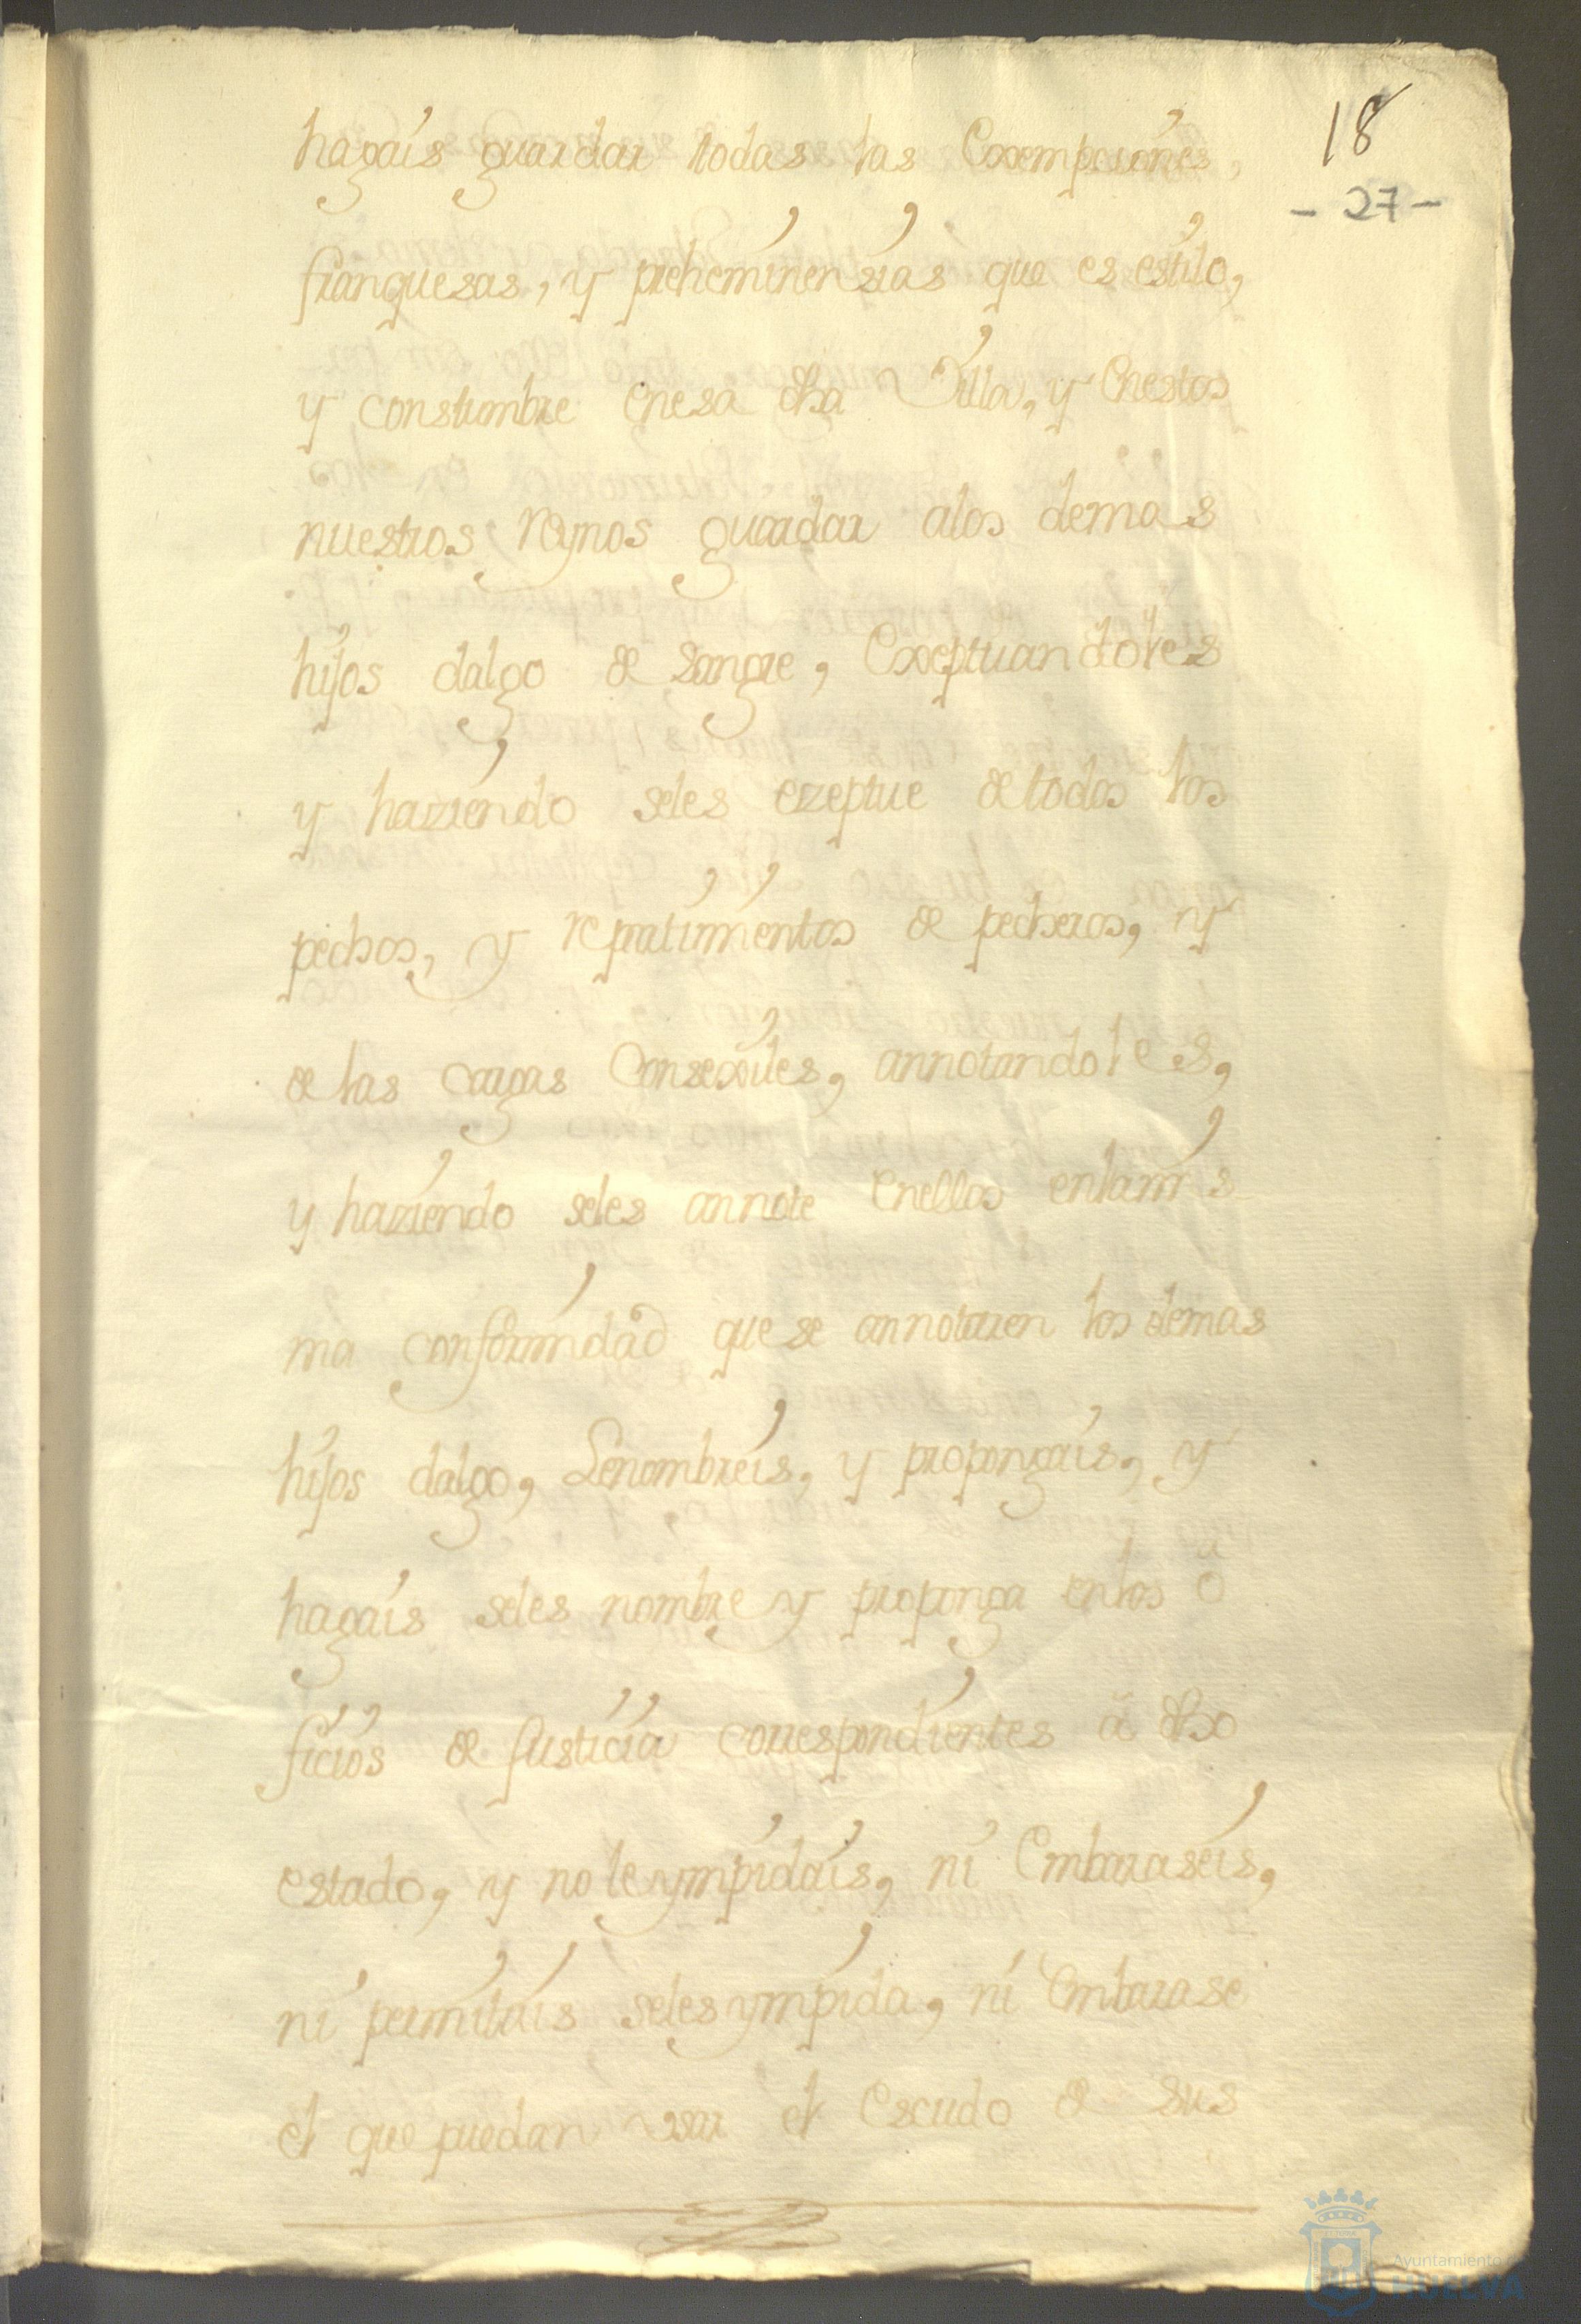 18
- 27 -
hagaís guardar todas las Exempcíones,
franquesas, y prehemínensías que es estílo,
y constumbre enesa dha Villa, y enestos
nuestros reynos guardar alos demas
híjos dalgo de sangre, Exeptuandoles
y hazíendo seles ezeptue detodos los
pechos, y repratímíentos de pecheros, y
de las cargas Consexíles, annotandoles,
y hazíendo seles annote enellos enlamís
ma conformídad que se annotaren los demas
híjos dalgo, Lenombreís, y propongaís, y
hagaís seles nombre y proponga enlos o
fícíos de Justícía correspondíentes â dho
estado, y noleympídaís, ní Embaraseís,
ní permítaís selesympída, ní Embarase
el que puedan vsar el Escudo de sus
Ayuntamiento de
HUELVA